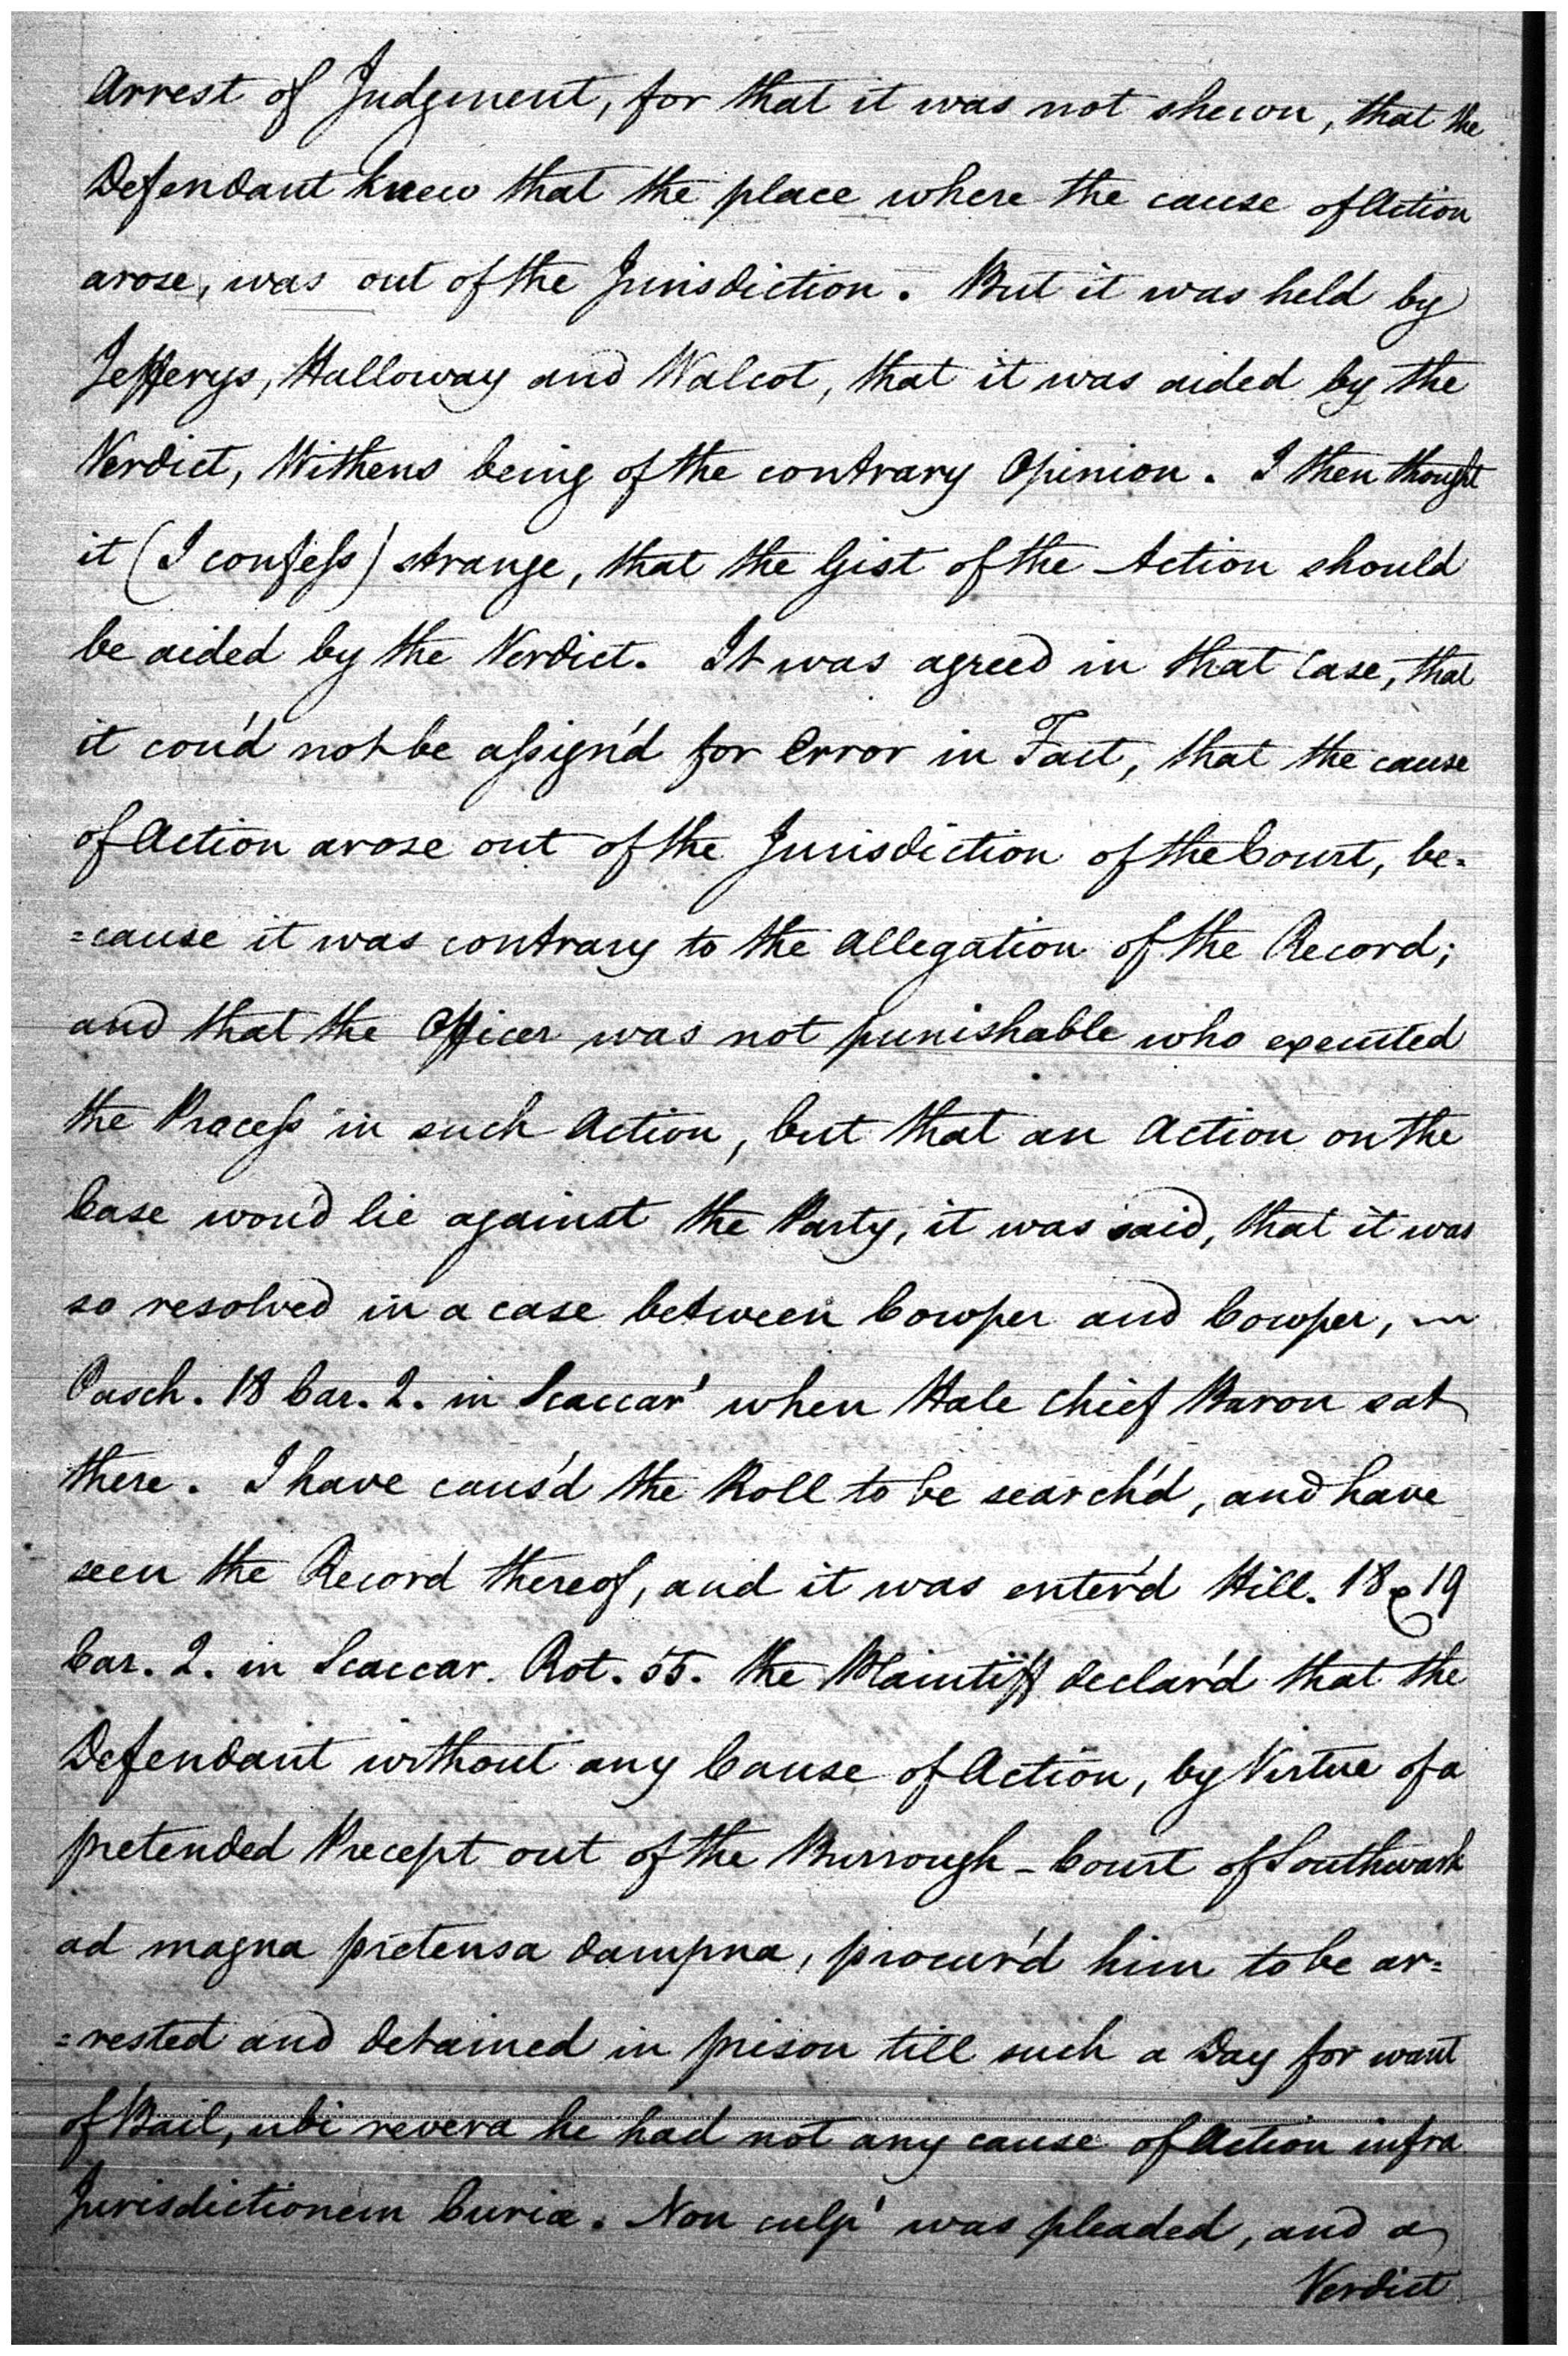 Arrest of Judgment, for that it was not shewn, that the
Defendant knew that the place where the cause of Action
arose, was out of the Jurisdiction. But it was held by
Jefferys, Halloway and Walcot, that it was aided by the
Verdict, Withens being of the contrary Opinion. I then thought
it (I confess) strange, that the Gist of the Action should
be aided by the Verdict. It was agreed in that Case, that
it cou'd not be assign'd for Error in Fact, that the cause
of Action arose out of the Jurisdiction of the Court, be=
=cause it was contrary to the Allegation of the Record;
and that the Officer was not punishable who executed
the Process in such Action, but that an Action on the
Case wou'd lie against the Party, it was said, that it was
so resolved in a case between Cowper and Cowper,
Pasch. 18 Car. 2. in Scaccar' when Hale Chief Baron sat
there. I have caus'd the Roll to be search'd, and have
seen the Record thereof, and it was enter'd Hill. 18 & 19
Car. 2. in Scaccar. Rot. 55. the Plaintiff declar'd that the
Defendant without any Cause of Action, by Virtue of a
pretended Precept out of the Burrough-Court of Southwark
ad magna pretensa dampna, procur'd him to be ar=
=rested and detained in prison till such a Day for want
of Bail, ubi revera he had not any cause of Action infra
Jurisdictionem Curiæ. Non culp' was pleaded, and a
Verdict